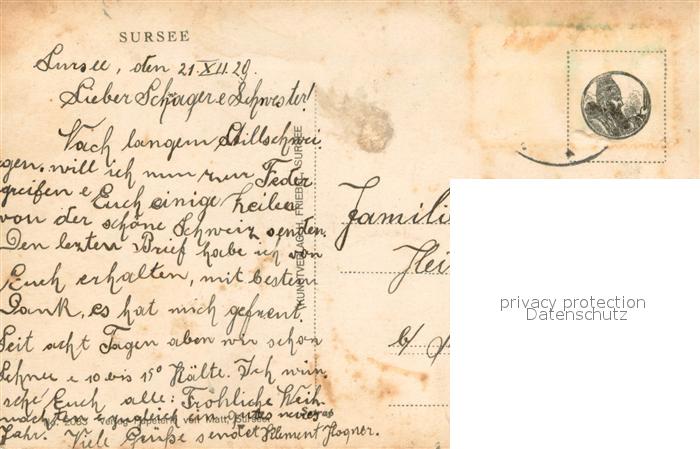 SURSEE
Sursee, den 21.XII.29.
Lieber Schager e Schwester!
Nach langem Stillschwei
gen. will ich nun zur Feder
greifen e Euch einige Zeilen
von der schöne Schweiz senden.
Den lezten Brief habe ich von
Euch erhalten, mit bestem
Dank, es hat mich gefreut.
Seit acht Tagen aben wir schon
Schnee e 10 bis 15° Kälte. Ich wün
sche Euch alle: Fröhliche Weih
nachten e zugleich ein gutes neues
Jahr. Viele Grüße sendet Klement Hogner.
Verlag Papeterie von Matt, Sursee
KUNSTVERLAG H. FRIEBEL SURSEE
Famili
Hei
b/
privacy protection
Datenschutz